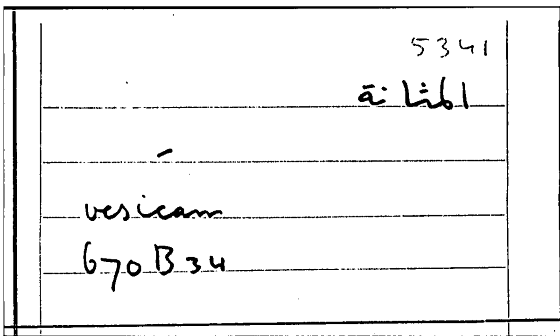 5341
المثانة
vesicam
670 B 34